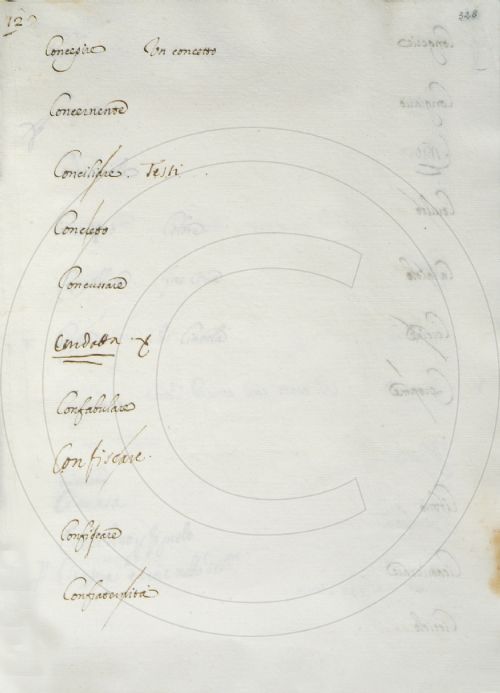 12 328
Concepire Un concetto
Concernente
Conciliare. Testi.
Concetto
Concussare
Condotta. X
Confabulare
Confiscare.
Conficcare
Confraternità